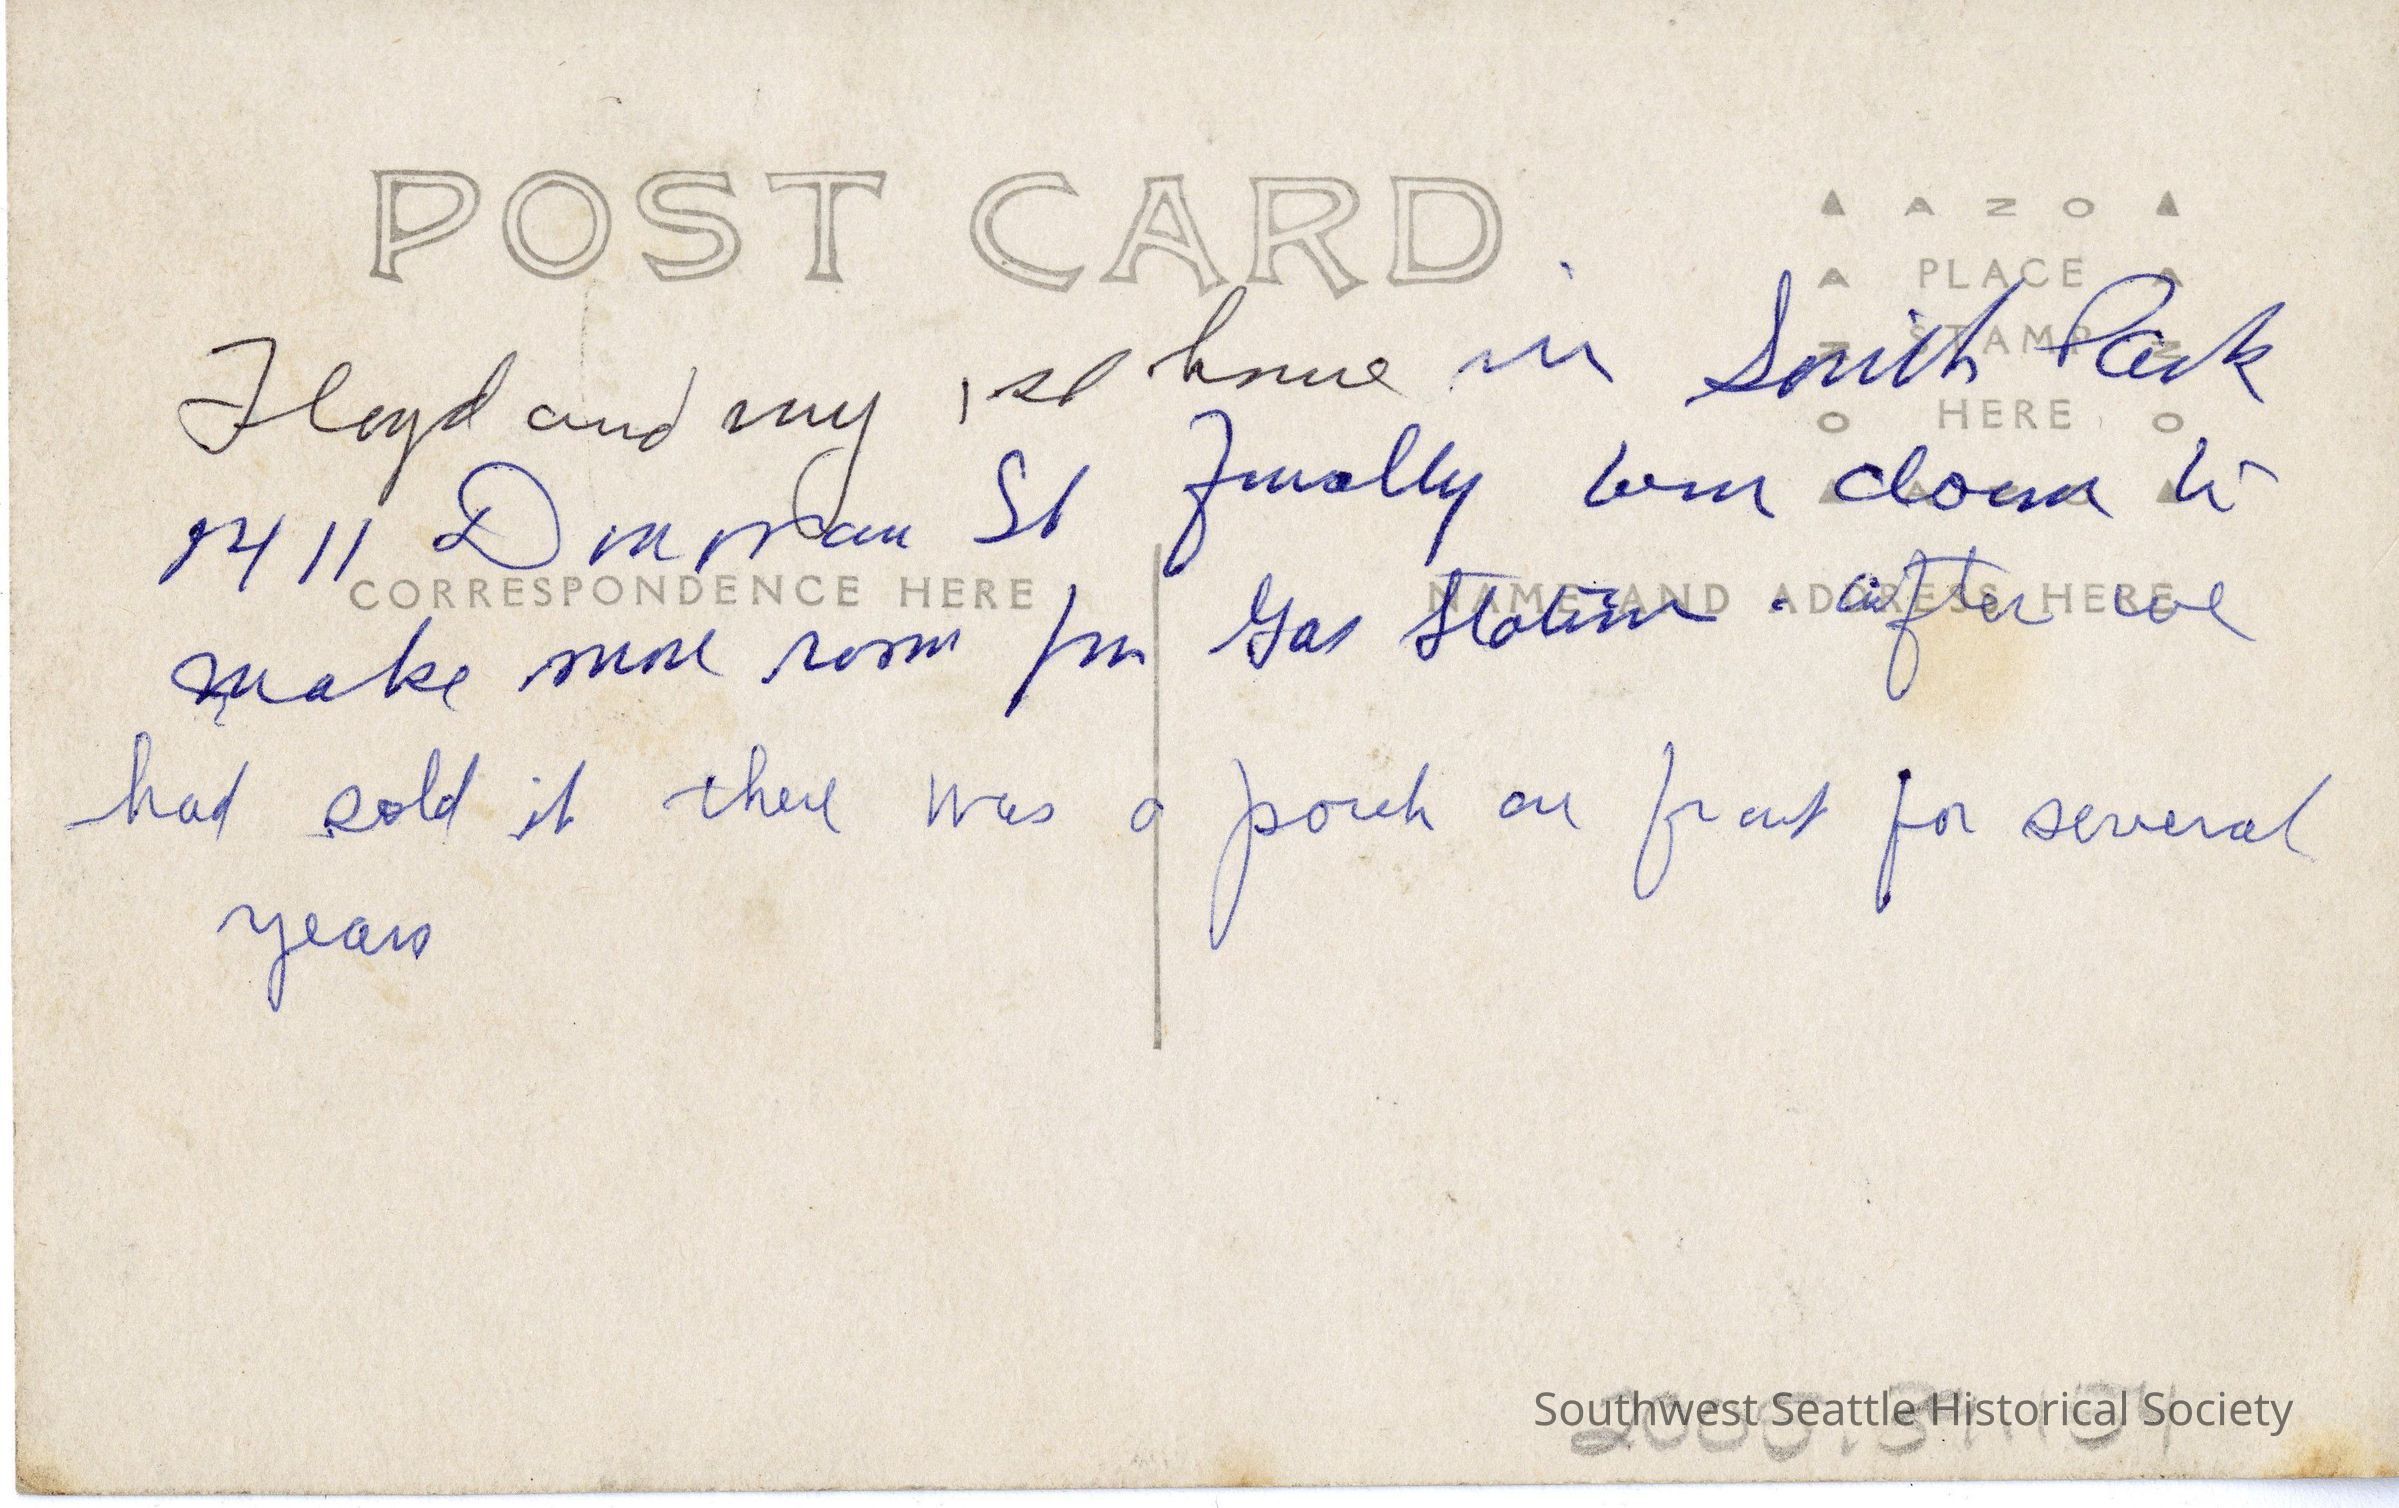 POST CARD
AZO
PLACE
STAMP
HERE
Floyd and my 1st home in South Park
Donovan St finally torn down to
CORRESPONDENCE HERE
NAME AND ADDRESS HERE
make more room for Gas Station . after we
had sold it there was a porch on front for several
years
Southwest Seattle Historical Society